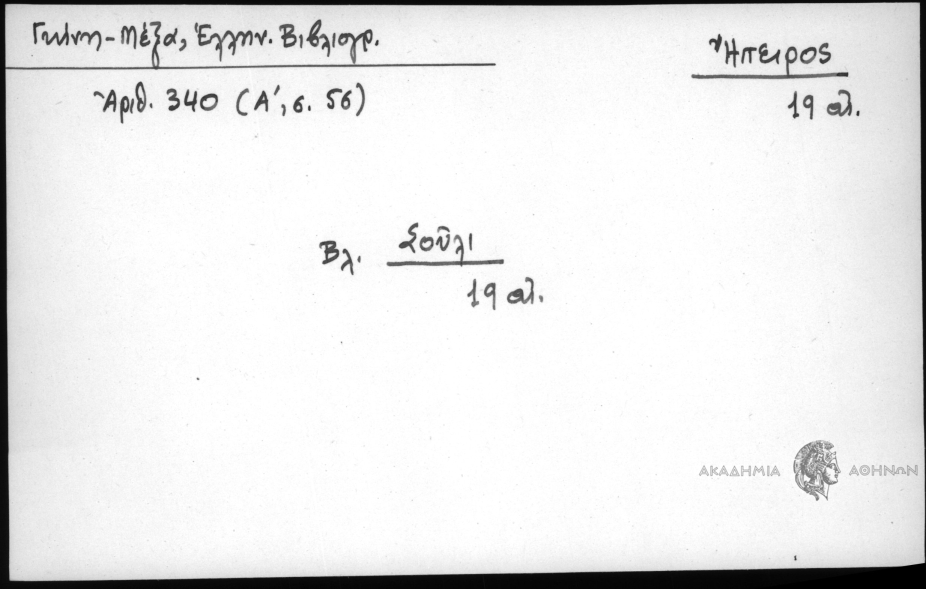 Γκίνη-Μέξα, Ἑλλην. Βιβλιογρ.
Ἤπειρος
19 αἰ.
Ἀριθ. 340 (Α΄, σ. 56)
Βλ. Σοῦλι
19 αἰ.
ΑΚΑΔΗΜΙΑ ΑΘΗΝΩΝ